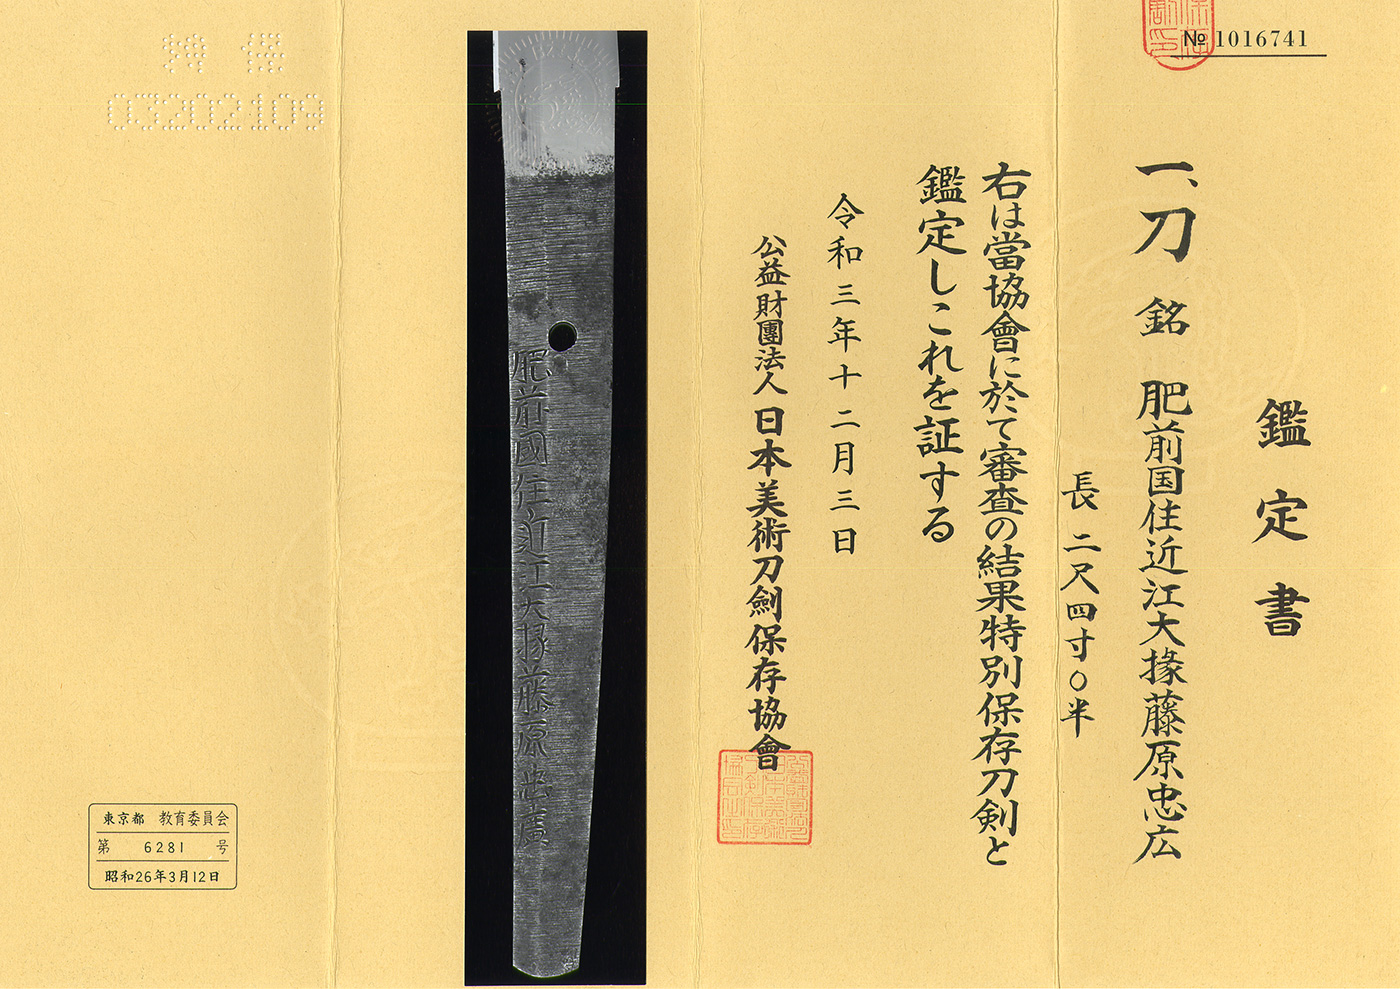 № 1016741
鑑定書
一、刀 銘 肥前国住近江大掾藤原忠広
長 二尺四寸〇半
右は當協會に於て審査の結果特別保存刀剣と
鑑定しこれを証する
令和三年十二月三日
公益財團法人 日本美術刀劍保存協會
肥前國住近江大掾藤原忠廣
03202109
東京都 教育委員会
第 6281 号
昭和26年3月12日